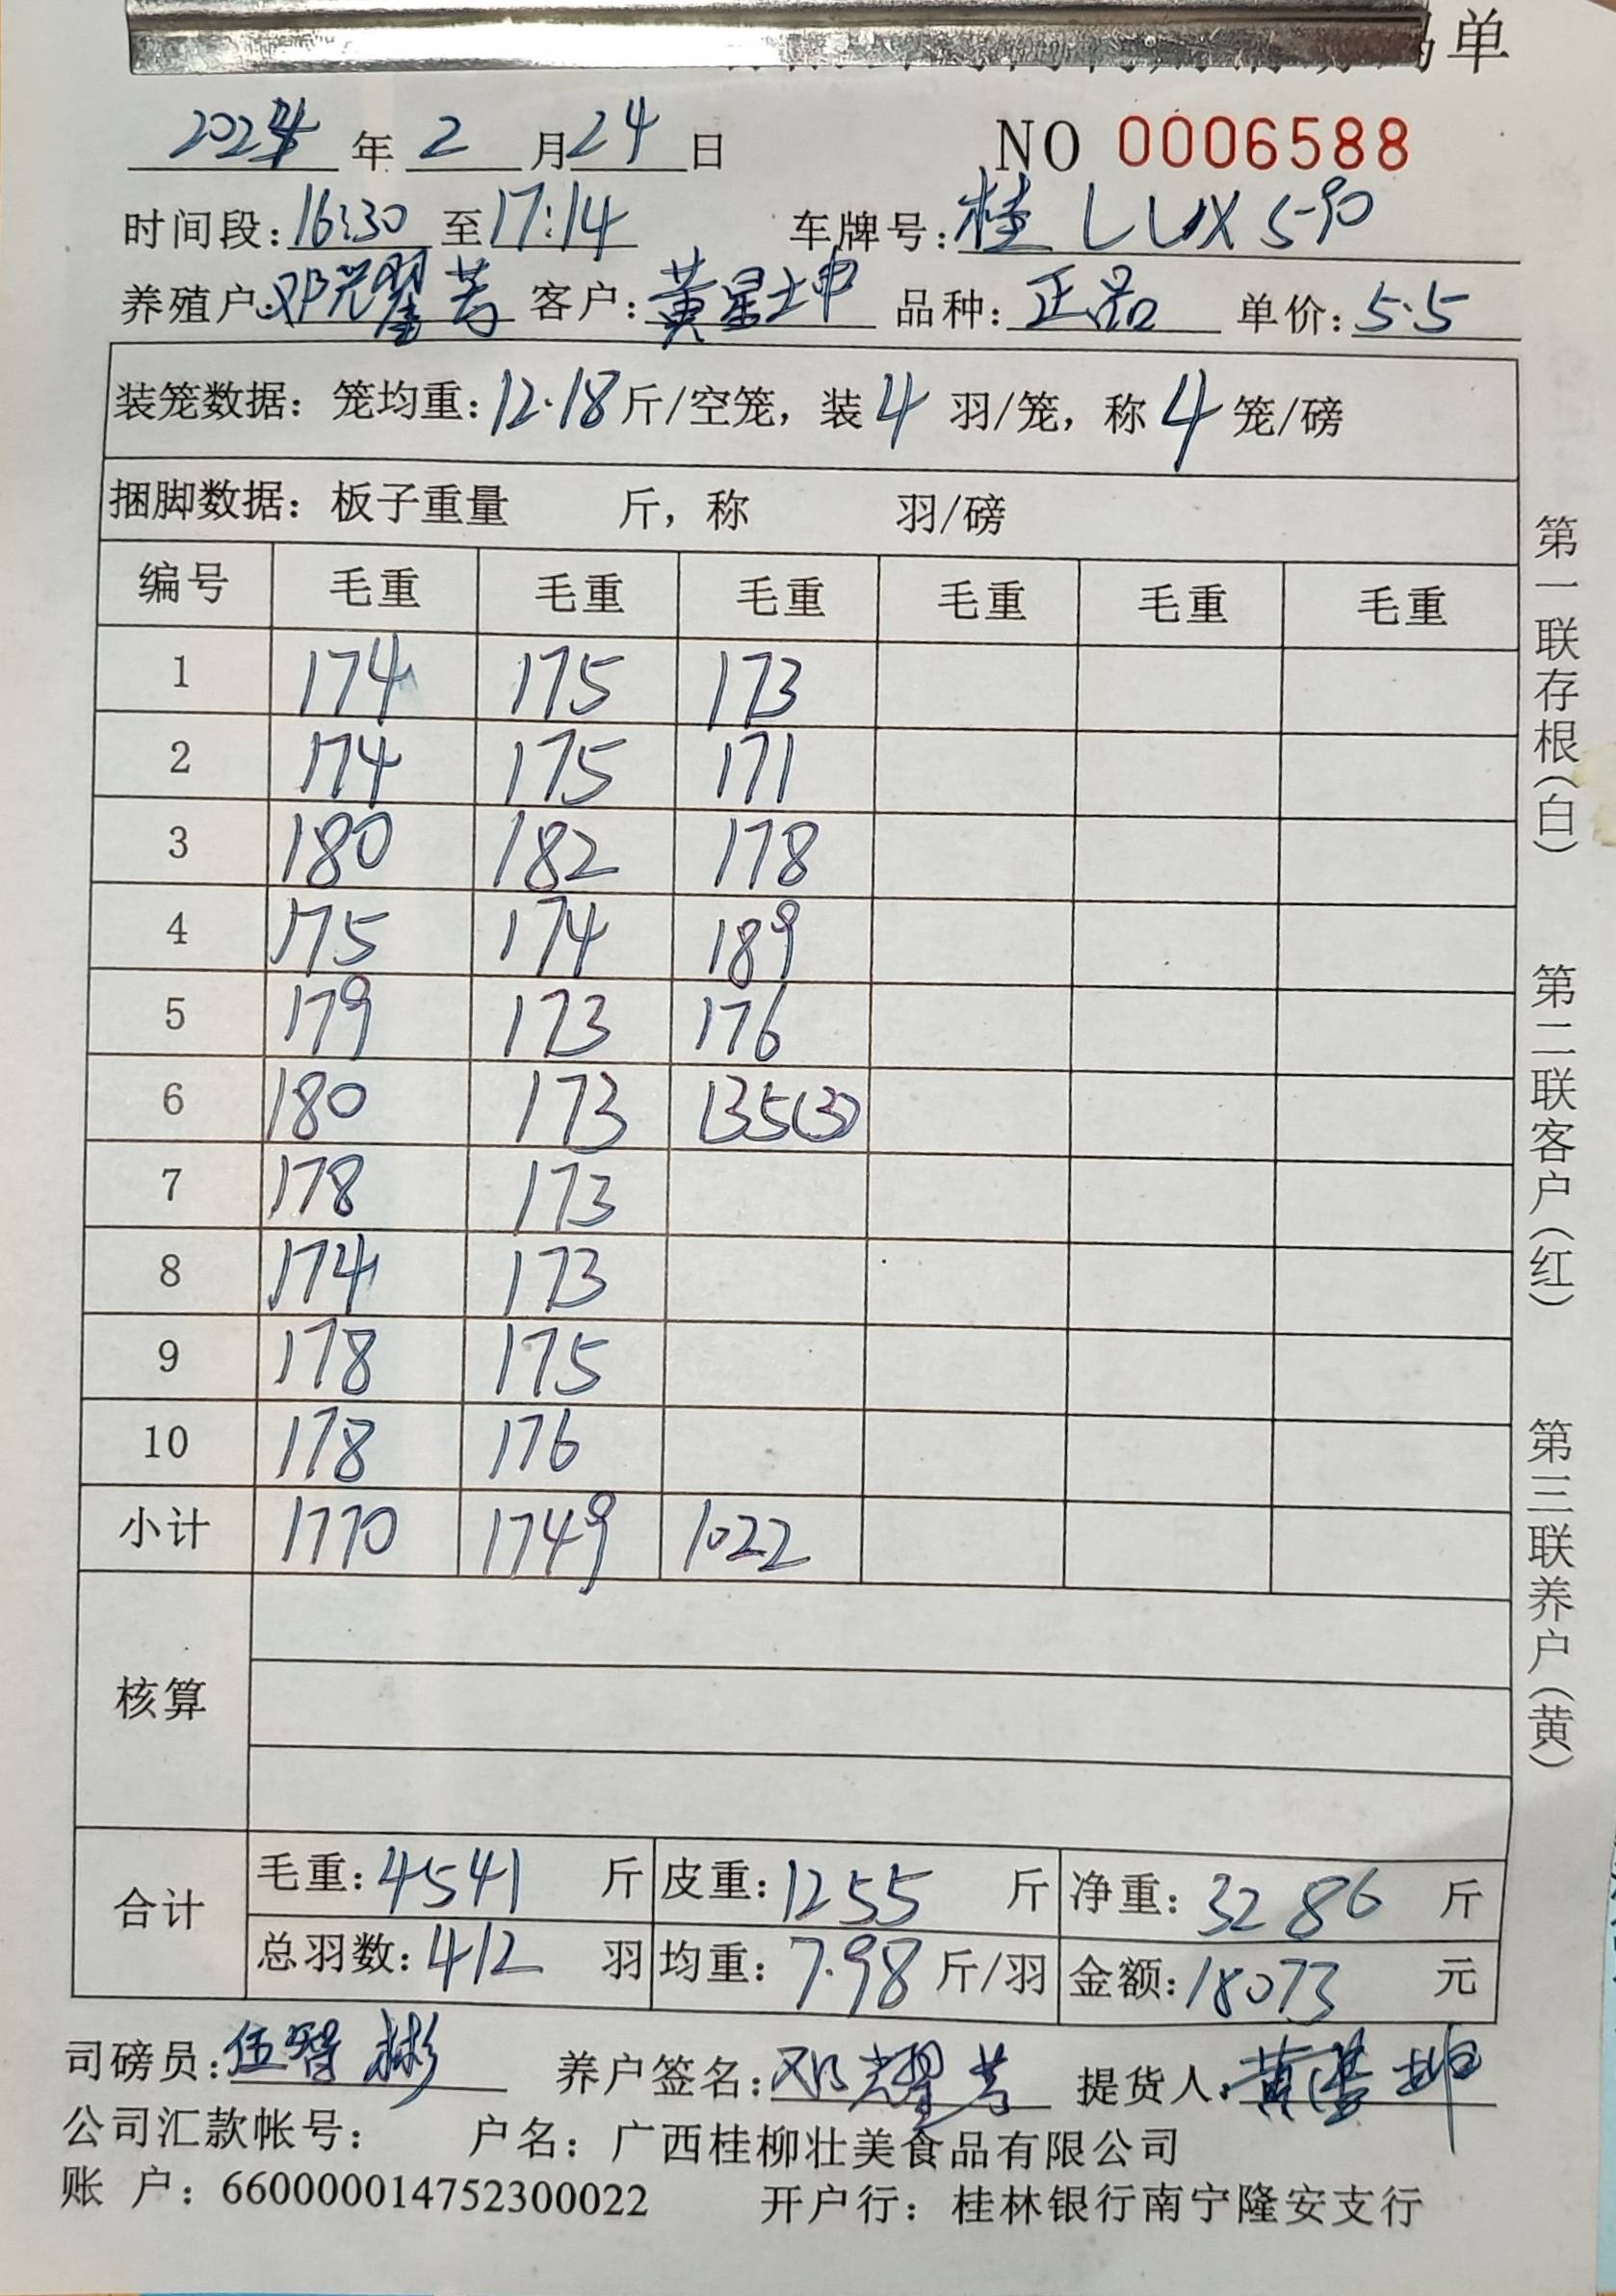 码单
2024年2月24日 NO 0006588
时间段:16:30至17:14 车牌号:桂LUX590
养殖户:邓耀芳 客户:黄星坤 品种:正品 单价:5.5
装笼数据：笼均重:12.18斤/空笼，装4羽/笼，称4笼/磅
捆脚数据：板子重量 斤，称 羽/磅
编号 毛重 毛重 毛重 毛重 毛重 毛重
1 174 175 173
2 174 175 171
3 180 182 178
4 175 174 189
5 179 173 176
6 180 173 135(3)
7 178 173
8 174 173
9 178 175
10 178 176
小计 1770 1749 1022
核算
合计 毛重:4541斤 皮重:1255斤 净重:3286斤
总羽数:412羽 均重:7.98斤/羽 金额:18073元
司磅员:伍智彬 养户签名:邓耀芳 提货人:黄星坤
公司汇款帐号： 户名：广西桂柳壮美食品有限公司
账 户：660000014752300022 开户行：桂林银行南宁隆安支行
第一联存根(白)
第二联客户(红)
第三联养户(黄)